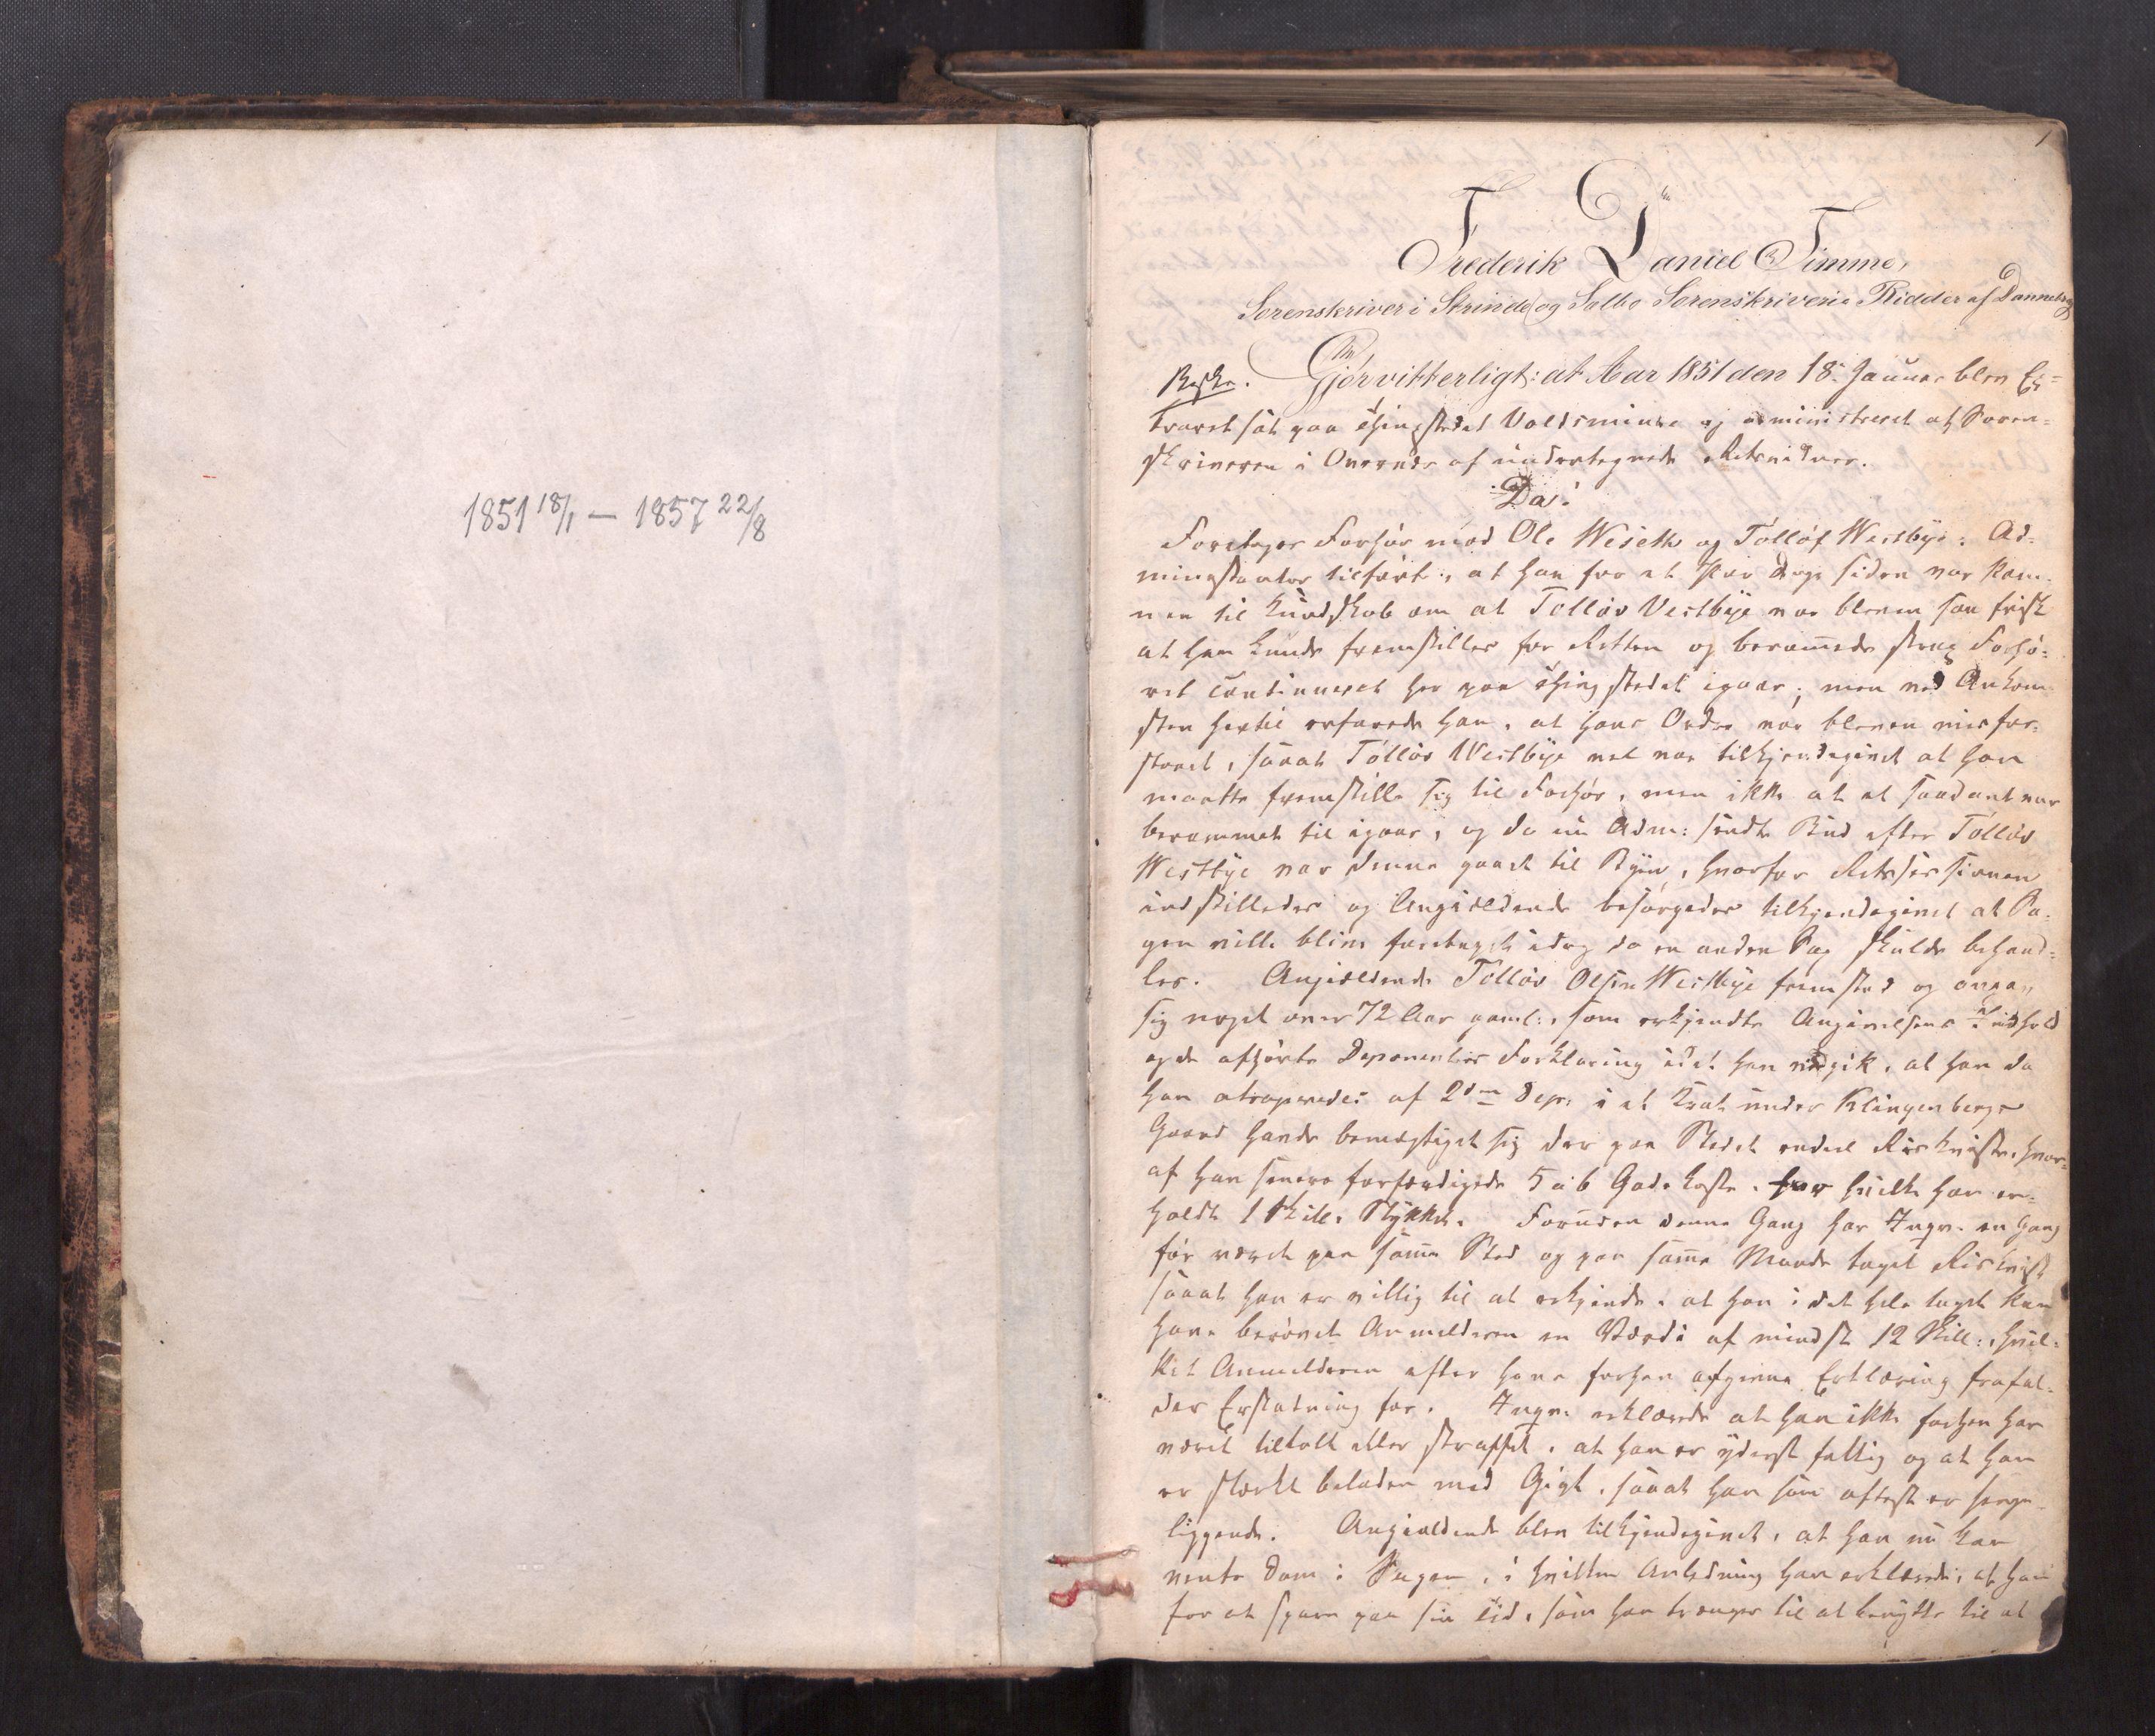 1851 18/1 — 1857 22/8
1
Frederik Daniel Timme,
Sorenskriver i Strinde og Selbo Sorenskriverie Ridder af Dannebrog
Gjør vitterligt: at Aar 1851 den 18. Januar blev Ex-
traret sat paa Thingstedet Voldsminde og administreret af Soren-
skriveren i Overvær af undertegnede Retsvidner.
Da:
Foretages Forhør mod Ole Weseth og Tølløf Westbye. Ad-
ministrator tilførte, at han for et Par Dage siden var kom-
men til Kundskab om at Tølløv Vestbye var bleven saa frisk
at han kunde fremstilles for Retten og berammede strax Forhø-
ret continueret her paa Thingstedet igaar; men ved Ankom-
sten hertil erfarede han, at hans Ordre var bleven misfor-
staaet, saaat Tølløv Westbye vel var tilkjendegivet at han
maatte fremstille sig til Forhør, men ikke at et saadant var
berammet til igaar, og da nu Adm: sendte Bud efter Tølløv
Westbye var denne gaaet til Byen, hvorfor Retssessionen
indstilledes og Angjældende besørgedes tilkjendegivet at Sa-
gen ville blive foretaget idag da en anden Sag skulde behand-
les. Angjældende Tølløv Olsen Westbye fremstod og angav
sig noget over 72 Aar gaml:, som erkjendte Angivelsens Indhold
og de afhørte Deponenters Forklaring idet han vedgik, at han da
han atraperedes af 2den Dep: i et Krat under Klingenbergs
Gaard havde bemægtiget sig der paa Stedet endeel Riiskviste, hvor-
af han senere forfærdigede 5 a 6 Gadekoste, for hvilke han er-
holdt 1 Skill. Stykket. Foruden denne Gang har Inqv. en Gang
før været paa samme Sted og paa samme Maade taget Riiskvist
saaat han er villig til at erkjende, at han i det hele taget kan
have berøvet Anmelderen en Værdi af mindst 12 Skill:, hvil-
ket Anmelderen efter hans forhen afgivne Erklæring frafal-
der Erstatning for. Inqv. erklærede at han ikke forhen har
været tiltalt eller straffet, at han er yderst fattig og at han
er stærkt beladen med Gigt, saaat han som oftest er senge-
liggende. Angjældende blev tilkjendegivet, at han nu kan
vente Dom i Sagen, i hvilken Anledning han erklærede, at han
for at spare paa sin Tid, som han trænger til at benytte til at